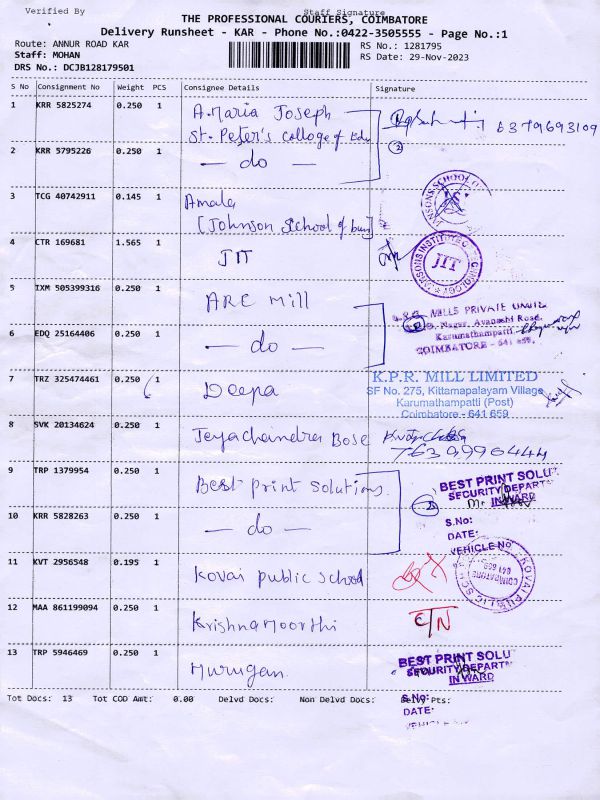 Verified By Staff Signature
THE PROFESSIONAL COURIERS, COIMBATORE
Delivery Runsheet - KAR - Phone No.:0422-3505555 - Page No.:1
Route: ANNUR ROAD KAR RS No.: 1281795
Staff: MOHAN RS Date: 29-Nov-2023
DRS No.: DCJB128179501
S No Consignment No Weight PCS Consignee Details Signature
1 KRR 5825274 0.250 1 A.Maria Joseph
St. Peter's College of Edu
2 KRR 5795226 0.250 1 — do —
3 TCG 40742911 0.145 1 Amala
[Johnson School of
JANSONS SCHOOL O
4 CTR 169681 1.565 1 JIT
JANSONS INSTITUTE
JIT
5 IXM 505399316 0.250 1 ARC Mill
MILLS PRIVATE LIMITE
Nagar, Avanashi Road,
Karumathampatti
COIMBATORE - 641 659.
6 EDQ 25164406 0.250 1 — do —
7 TRZ 325474461 0.250 1 Deepa
K.P.R. MILL LIMITED
SF No. 275, Kittampalayam Village
Karumathampatti (Post)
Coimbatore - 641 659
8 SVK 20134624 0.250 1 Jeyachandra Bose
9 TRP 1379954 0.250 1 Best print Solutions
BEST PRINT SOLU
SECURITY DEPART
INWARD
S.No:
DATE:
VEHICLE NO
10 KRR 5828263 0.250 1 — do —
11 KVT 2956548 0.195 1 Kovai public School
KOVAI PUBLIC SC
COIMBATORE
641 659
12 MAA 861199094 0.250 1 Krishnamoorthi
13 TRP 5946469 0.250 1 Murugan
BEST PRINT SOLU
SECURITY DEPART
INWARD
Tot Docs: 13 Tot COD Amt: 0.00 Delvd Docs: Non Delvd Docs: Delvy Pts:
S.No:
DATE: